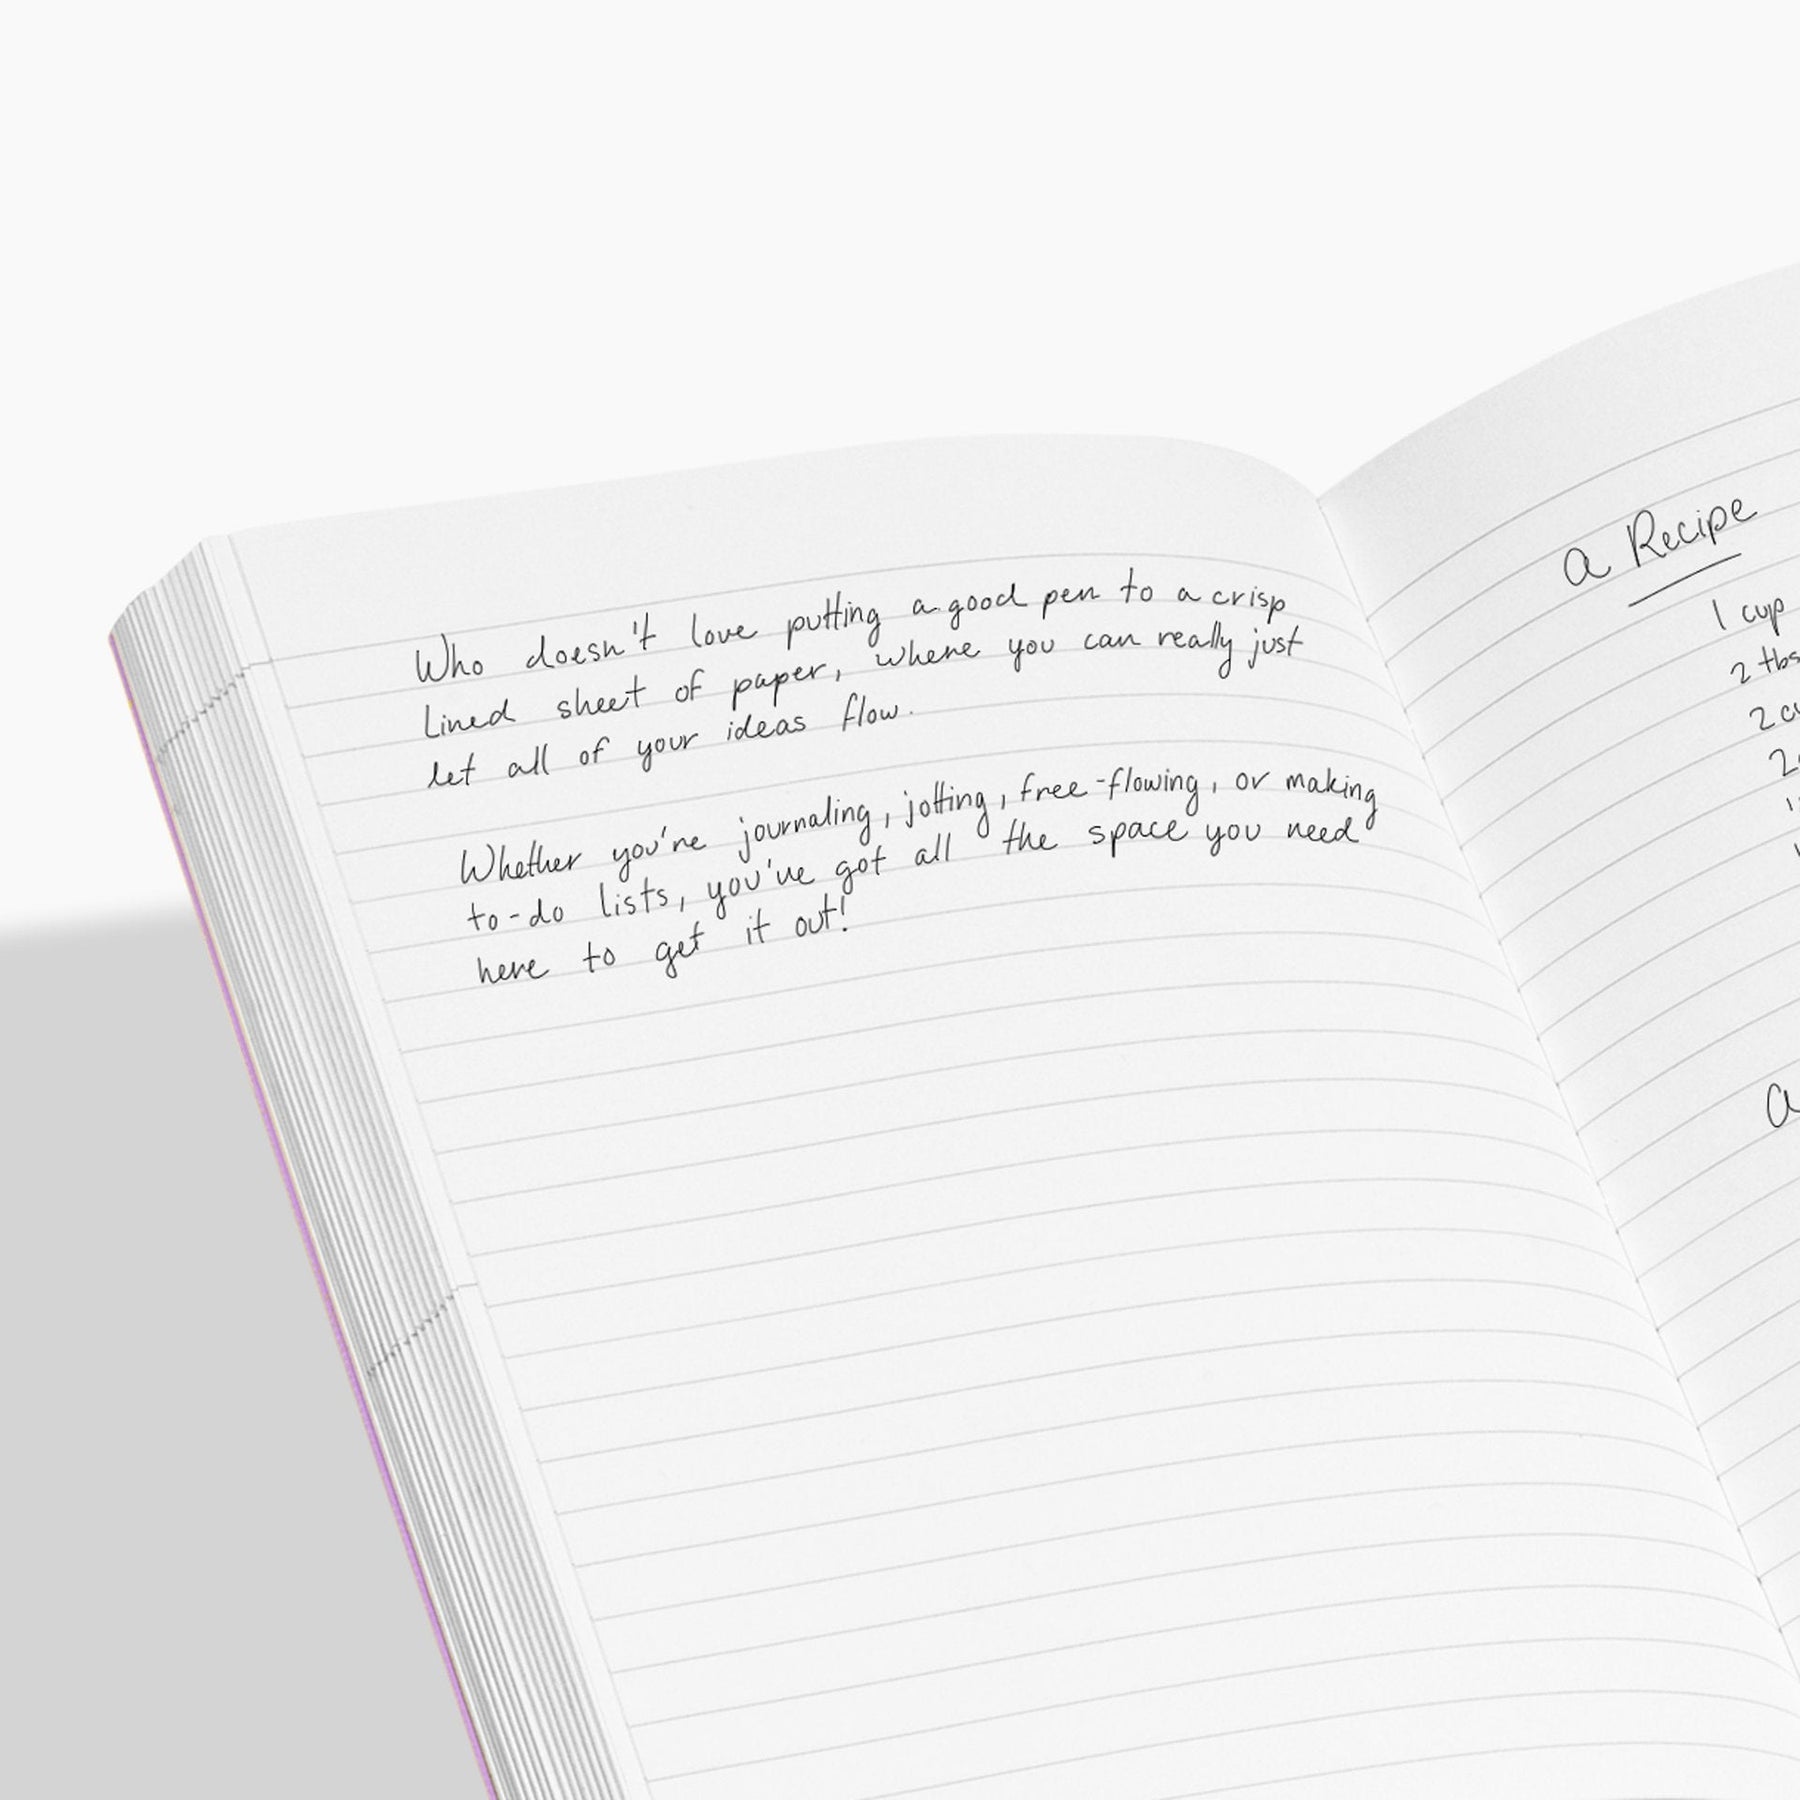 Who doesn't love putting a good pen to a crisp
lined sheet of paper, where you can really just
let all of your ideas flow.
Whether you're journaling, jotting, free-flowing, or making
to-do lists, you've got all the space you need
here to get it out!
a Recipe
1 cup
2 tbs
2 cu